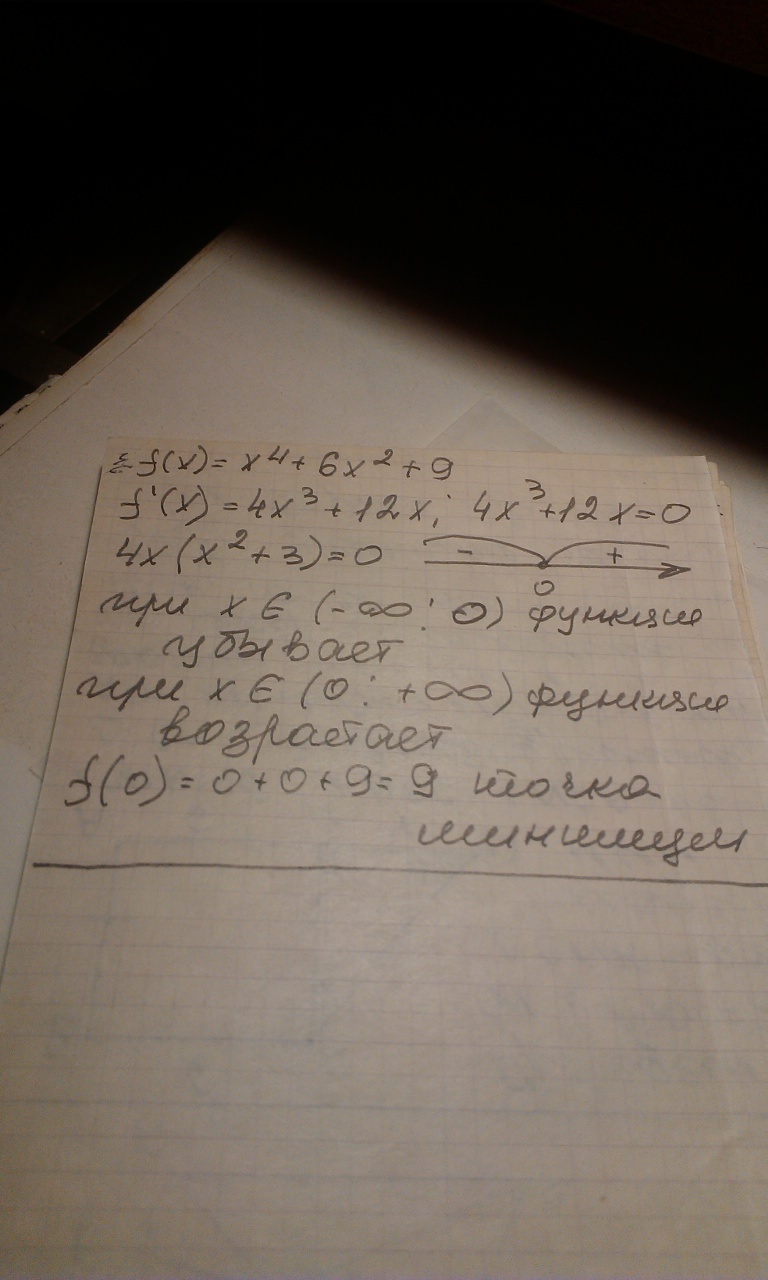 f(x)= x⁴+ 6x²+9
f'(x) = 4x³+12x; 4x³+12x=0
4x(x²+3)=0 - +
0
при x ∈ (-∞; 0) функция
убывает
при x ∈ (0; +∞) функция
возрастает
f(0)= 0+0+9= 9 точка
минимум